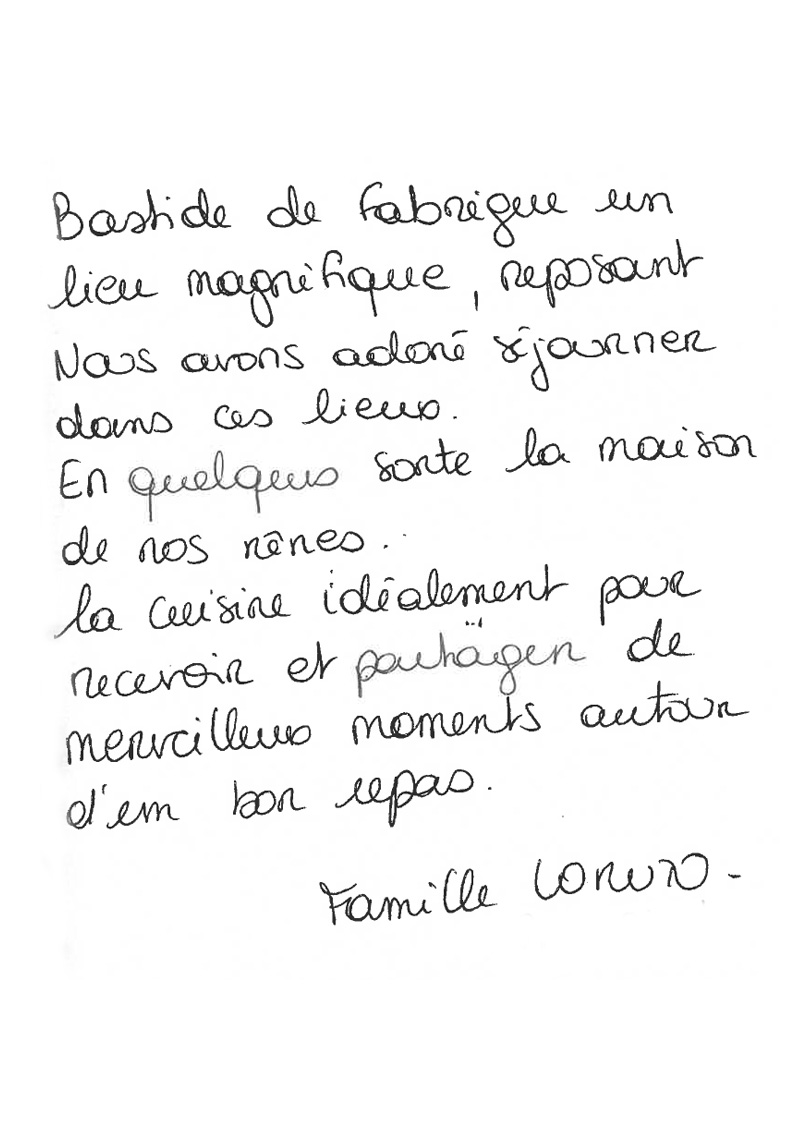 Bastide de Fabrègue un
lieu magnifique, reposant
Nous avons adoré séjourner
dans ces lieux.
En quelques sorte la maison
de nos rêves.
La cuisine idéalement pour
recevoir et partager de
merveilleux moments autour
d'un bon repas.
Famille